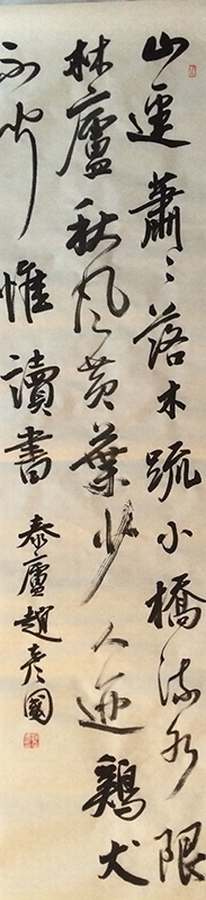 山逕蕭〻落木疏小橋流水限
林廬秋風黃葉少人迹鷄犬
不聞惟讀書 泰廬趙彥國